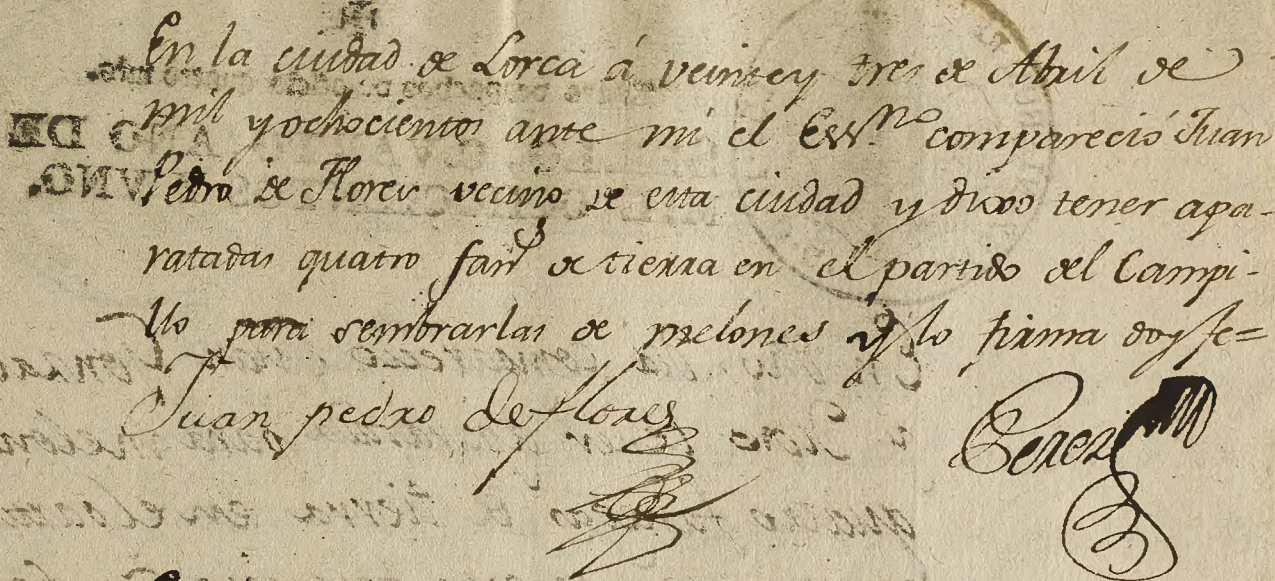 En la ciudad de Lorca á veintey tres de Abril de
mil yochocientos ante mi el Essno compareció Juan
Pedro de Flores vecino de esta ciudad y dixo tener apa-
ratadas quatro fans de tierra en el partido del Campi-
llo para sembrarlas de melones y lo firma doy fe=
Juan pedro de flores
Perez